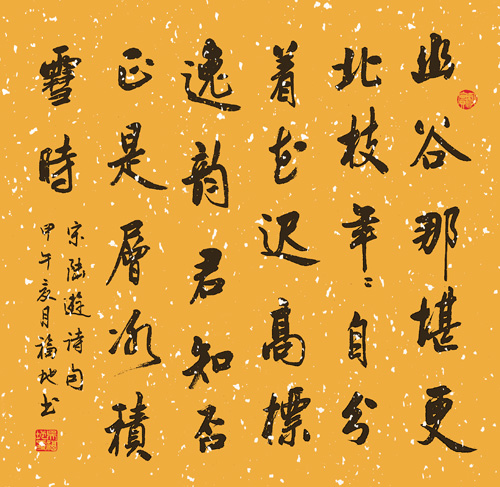 幽谷那堪更
北枝年々自分
着花迟高標
逸韵君知否
正是層冰積
雪時
宋陆游诗句
甲午亥月福地书